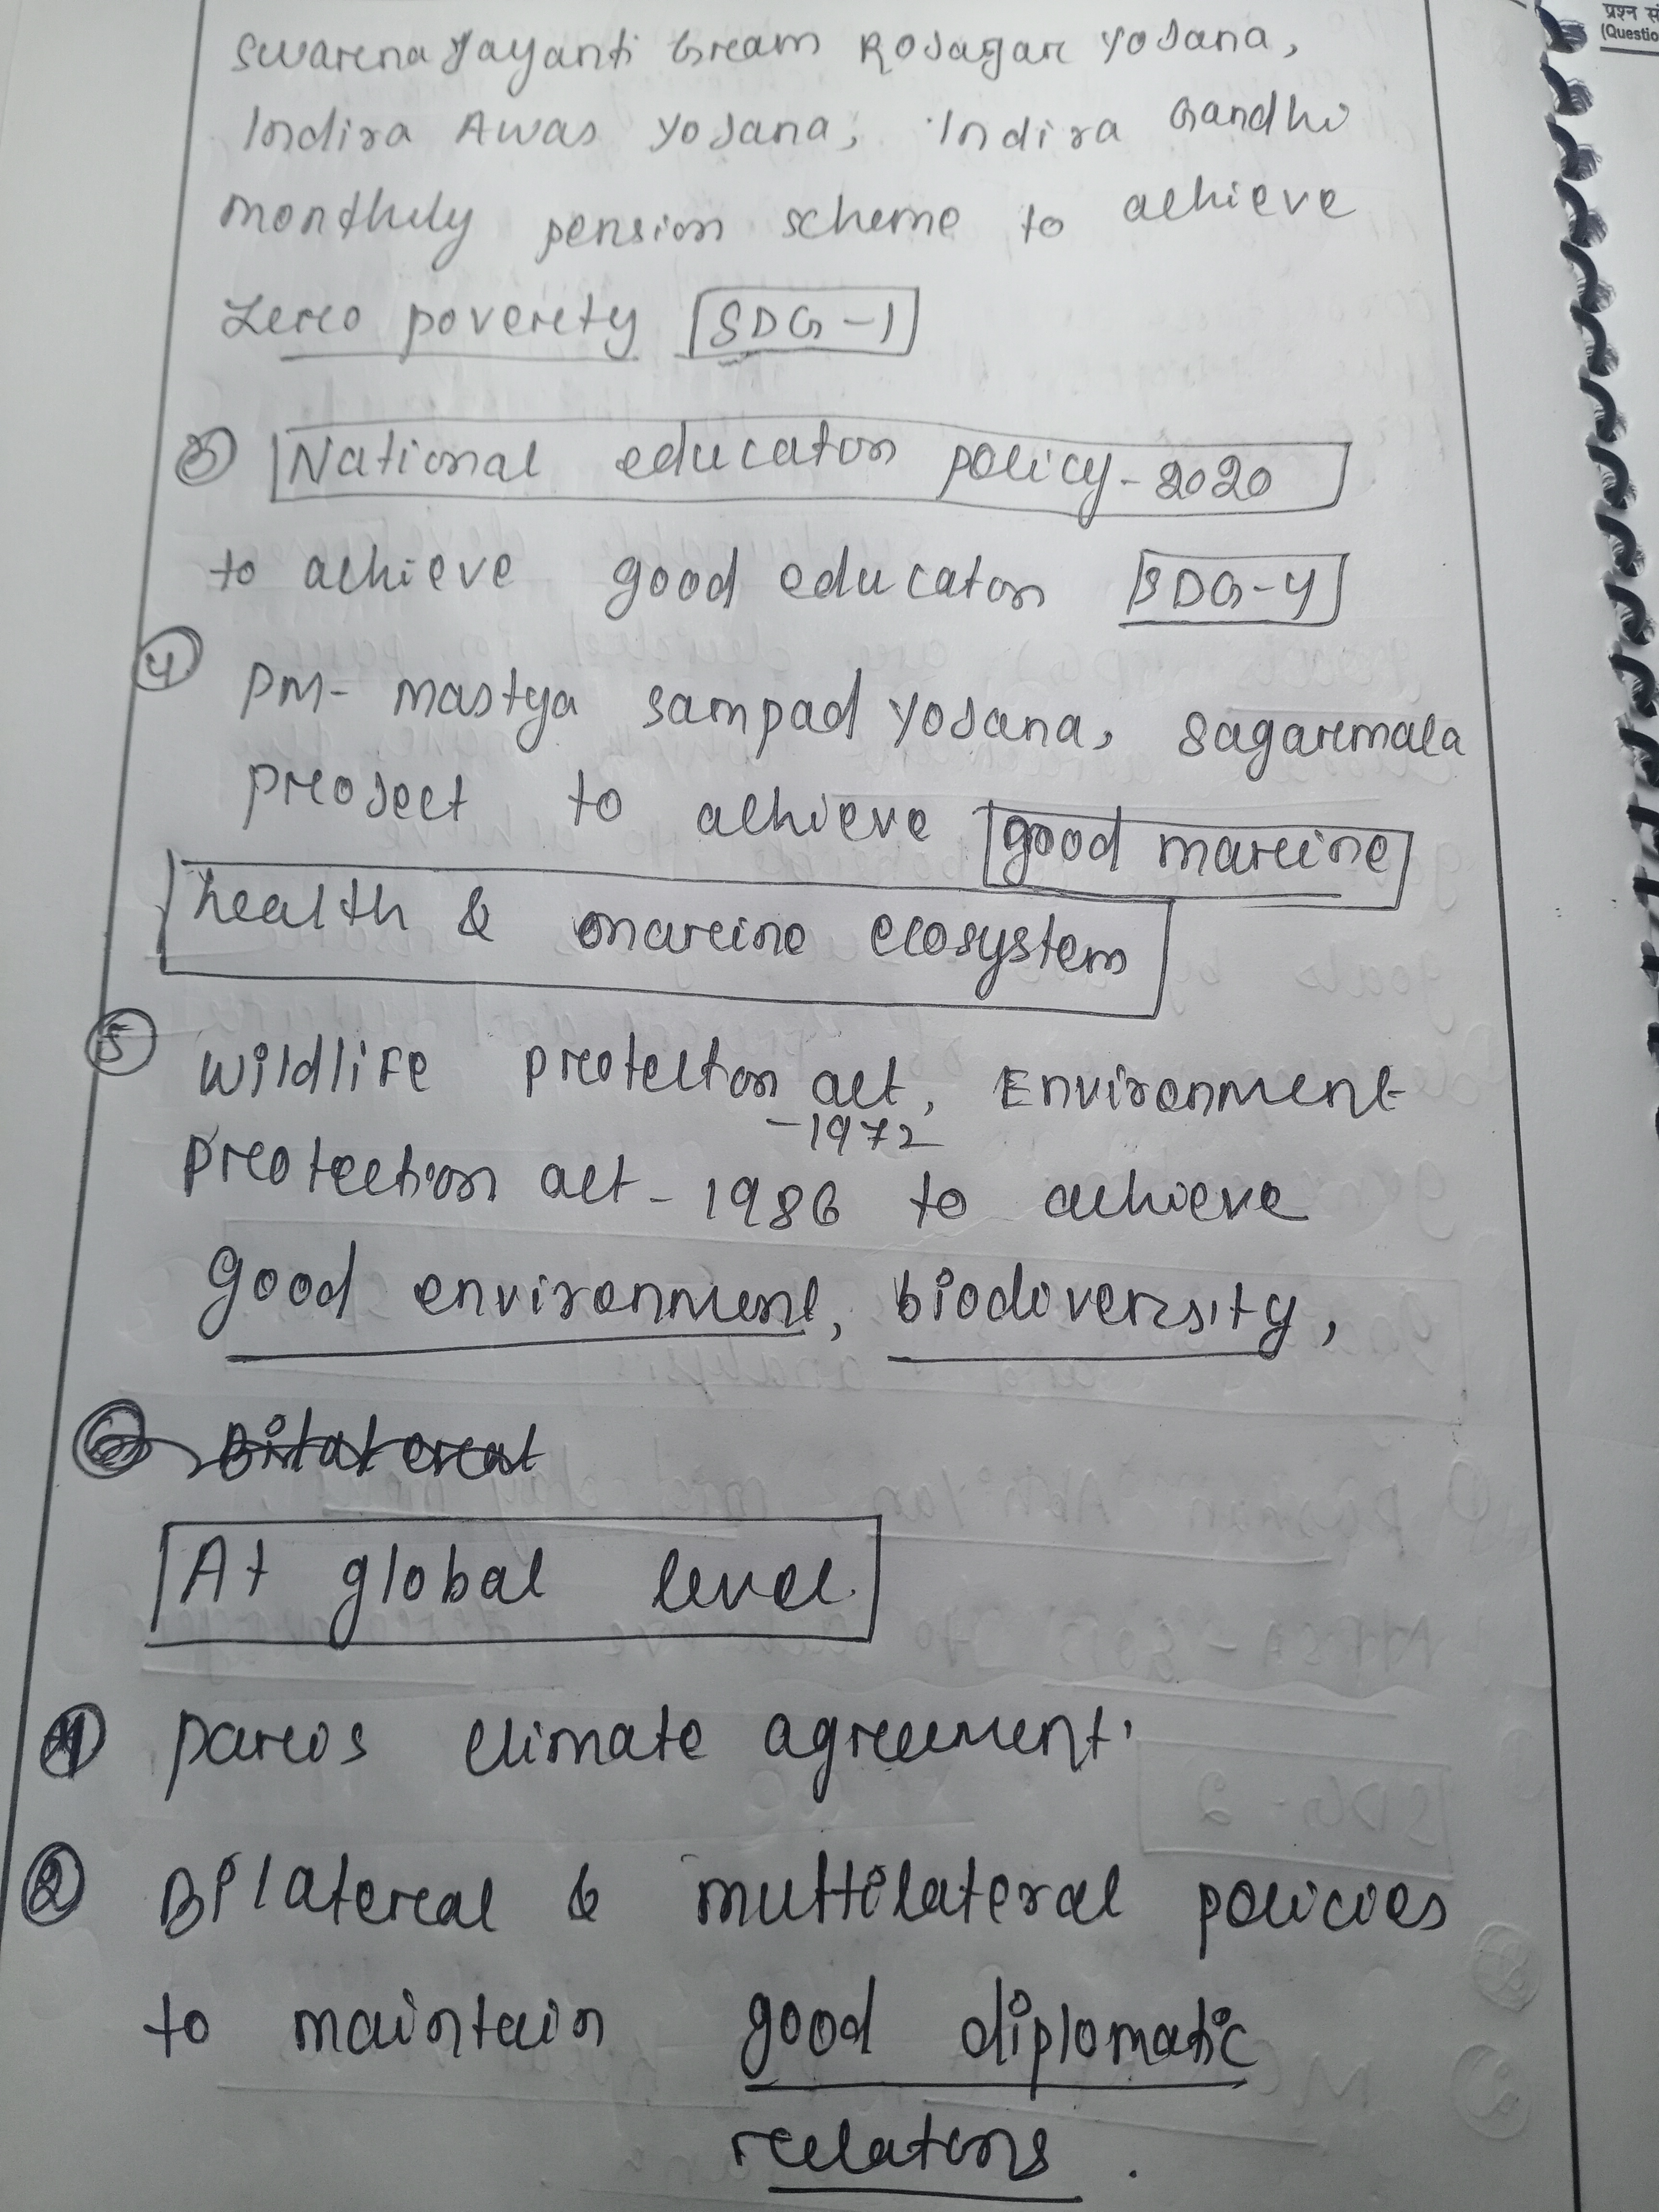 प्रश्न सं
(Questio
Swarena Jayanti Gream Rojagar Yojana,
Indira Awas Yojana, Indira Gandhi
monthly pension scheme to achieve
Zero poverty SDG-1
3 National educaton policy-2020
to achieve good educaton SDG-4
4 PM- mastya sampad Yojana, sagarmala
project to achieve good marine
health & marine ecosystem
5 Wildlife protection act, Environment
-1972
protection act - 1986 to achieve
good environment, biodiversity,
Bilateral
At global level
1 paris climate agreement.
2 Bilateral & multilateral policies
to maintain good diplomatic
relations.